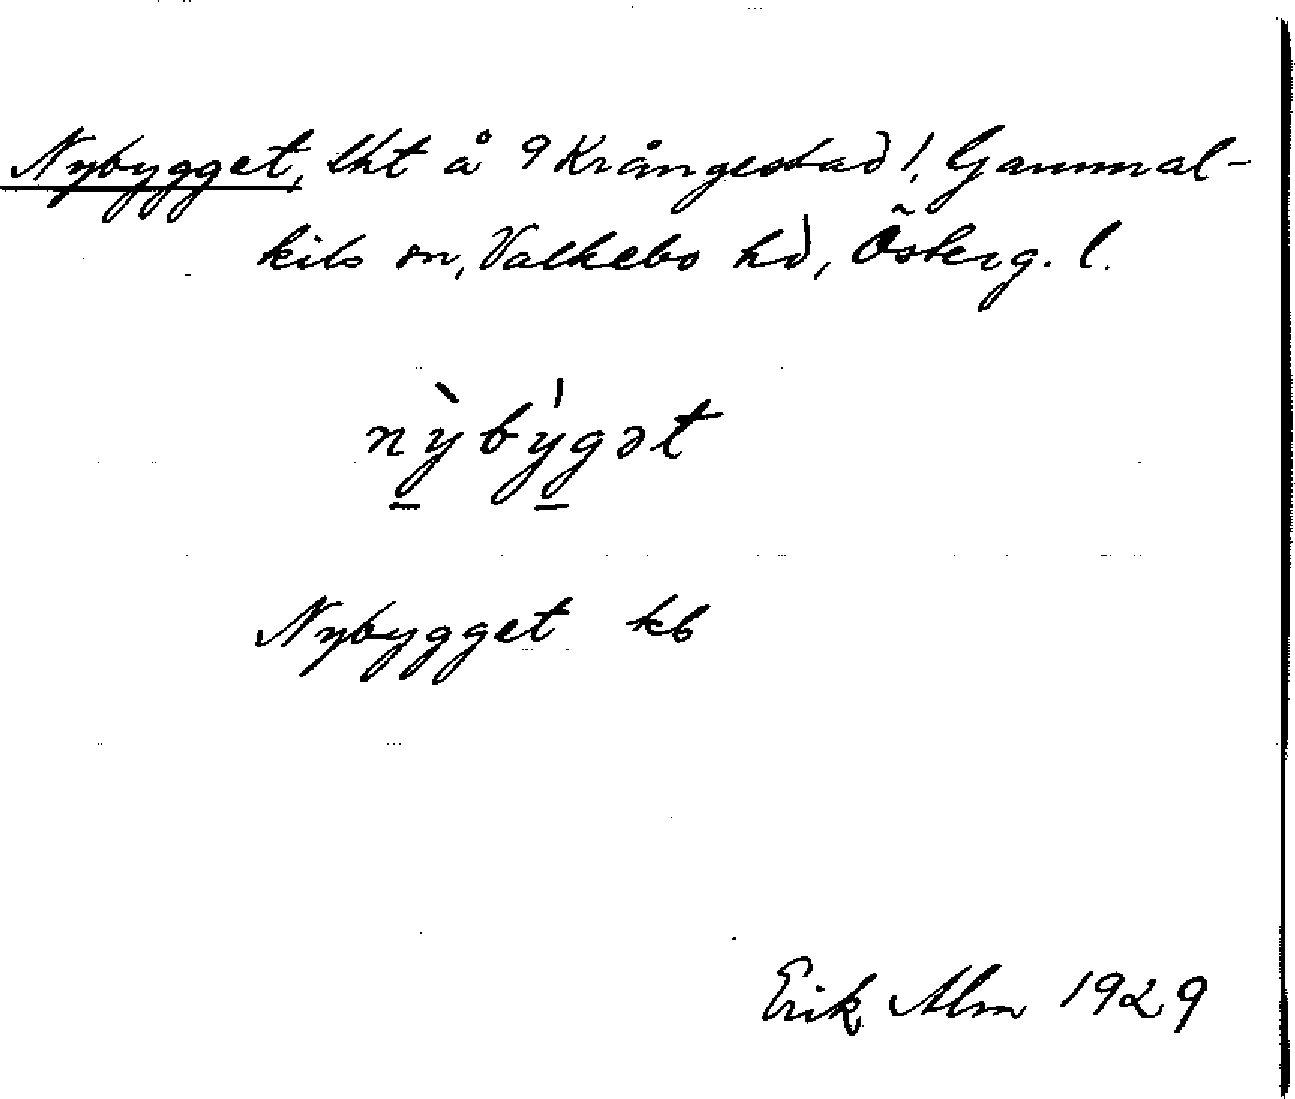 Nybygget, lht å 9 Krångestad!, Gammal-
kils sn, Valkebo hd, Österg. l.
nỳbýgət
Nybygget kb
Erik Alm 1929